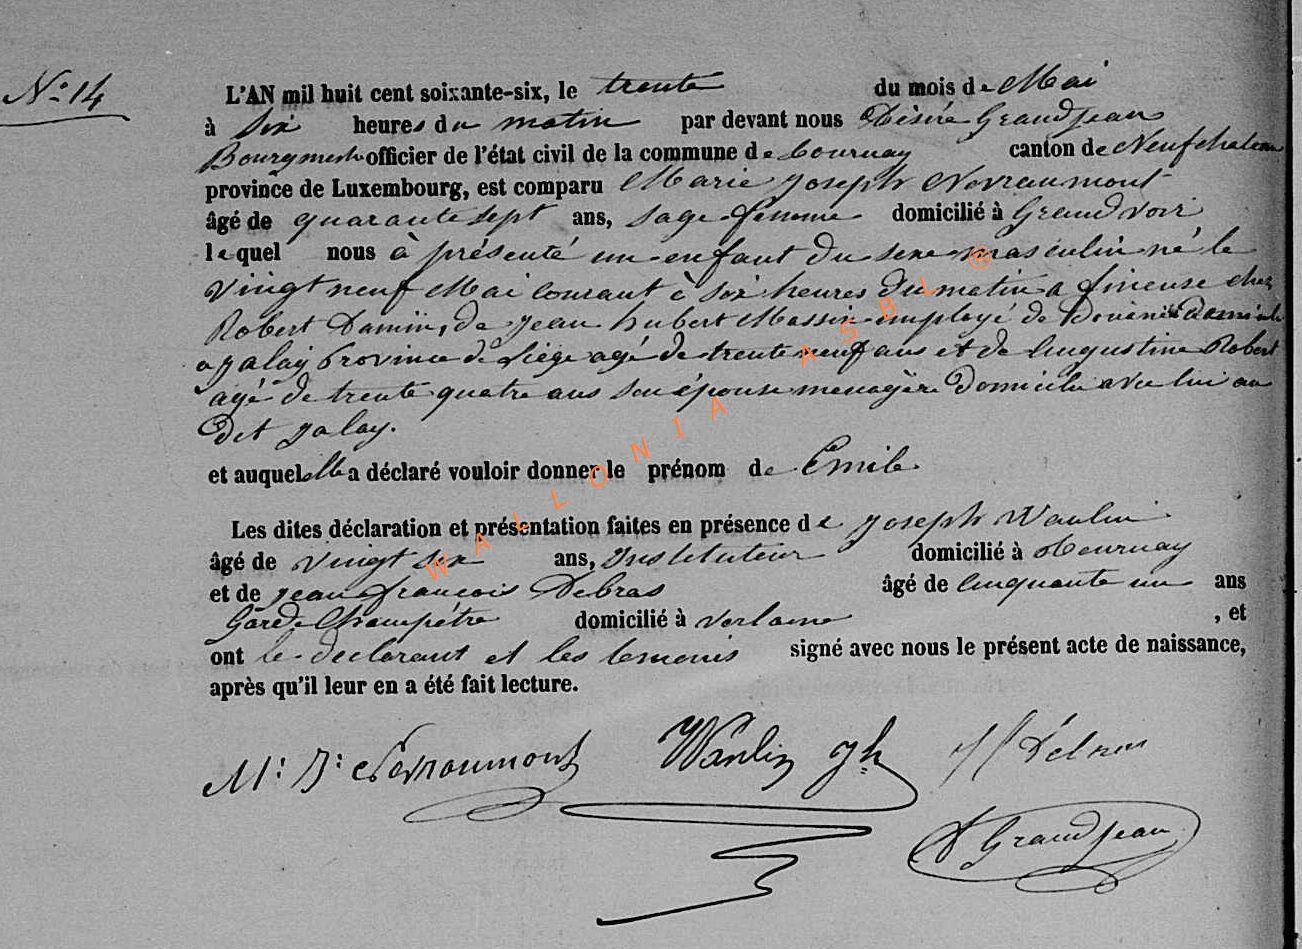 N° 14
L'AN mil huit cent soixante-six, le trente du mois de Mai
à six heures du matin par devant nous Désiré Grandjean
Bourgmestre officier de l'état civil de la commune de tournay canton de Neufchateau
province de Luxembourg, est comparu Marie Joseph Nevraumont
âgé de quarante sept ans, sage femme domicilié à Grandvoir
lequel nous à présenté un enfant du sexe masculin né le
vingt neuf Mai courant à six heures du matin a fineuse chez
Robert Damiin, de Jean hubert Massin employé de Douane domicile
a Jalay Province de Liège agé de trente neuf ans et de augustine Robert
agé de trente quatre ans son épouse menagère domicile avec lui au
dit Jalay.
et auquel elle a déclaré vouloir donner le prénom de Emile
Les dites déclaration et présentation faites en présence de Joseph Wanlin
âgé de vingt six ans, instituteur domicilié à tournay
et de jean françois Debras âgé de cinquante un ans
Garde Champétre domicilié à verlaine , et
ont le declarant et les temoins signé avec nous le présent acte de naissance,
après qu'il leur en a été fait lecture.
M: J: Nevraumont Wanlin Jh Debras
D Grandjean
WALLONIA ASBL ®